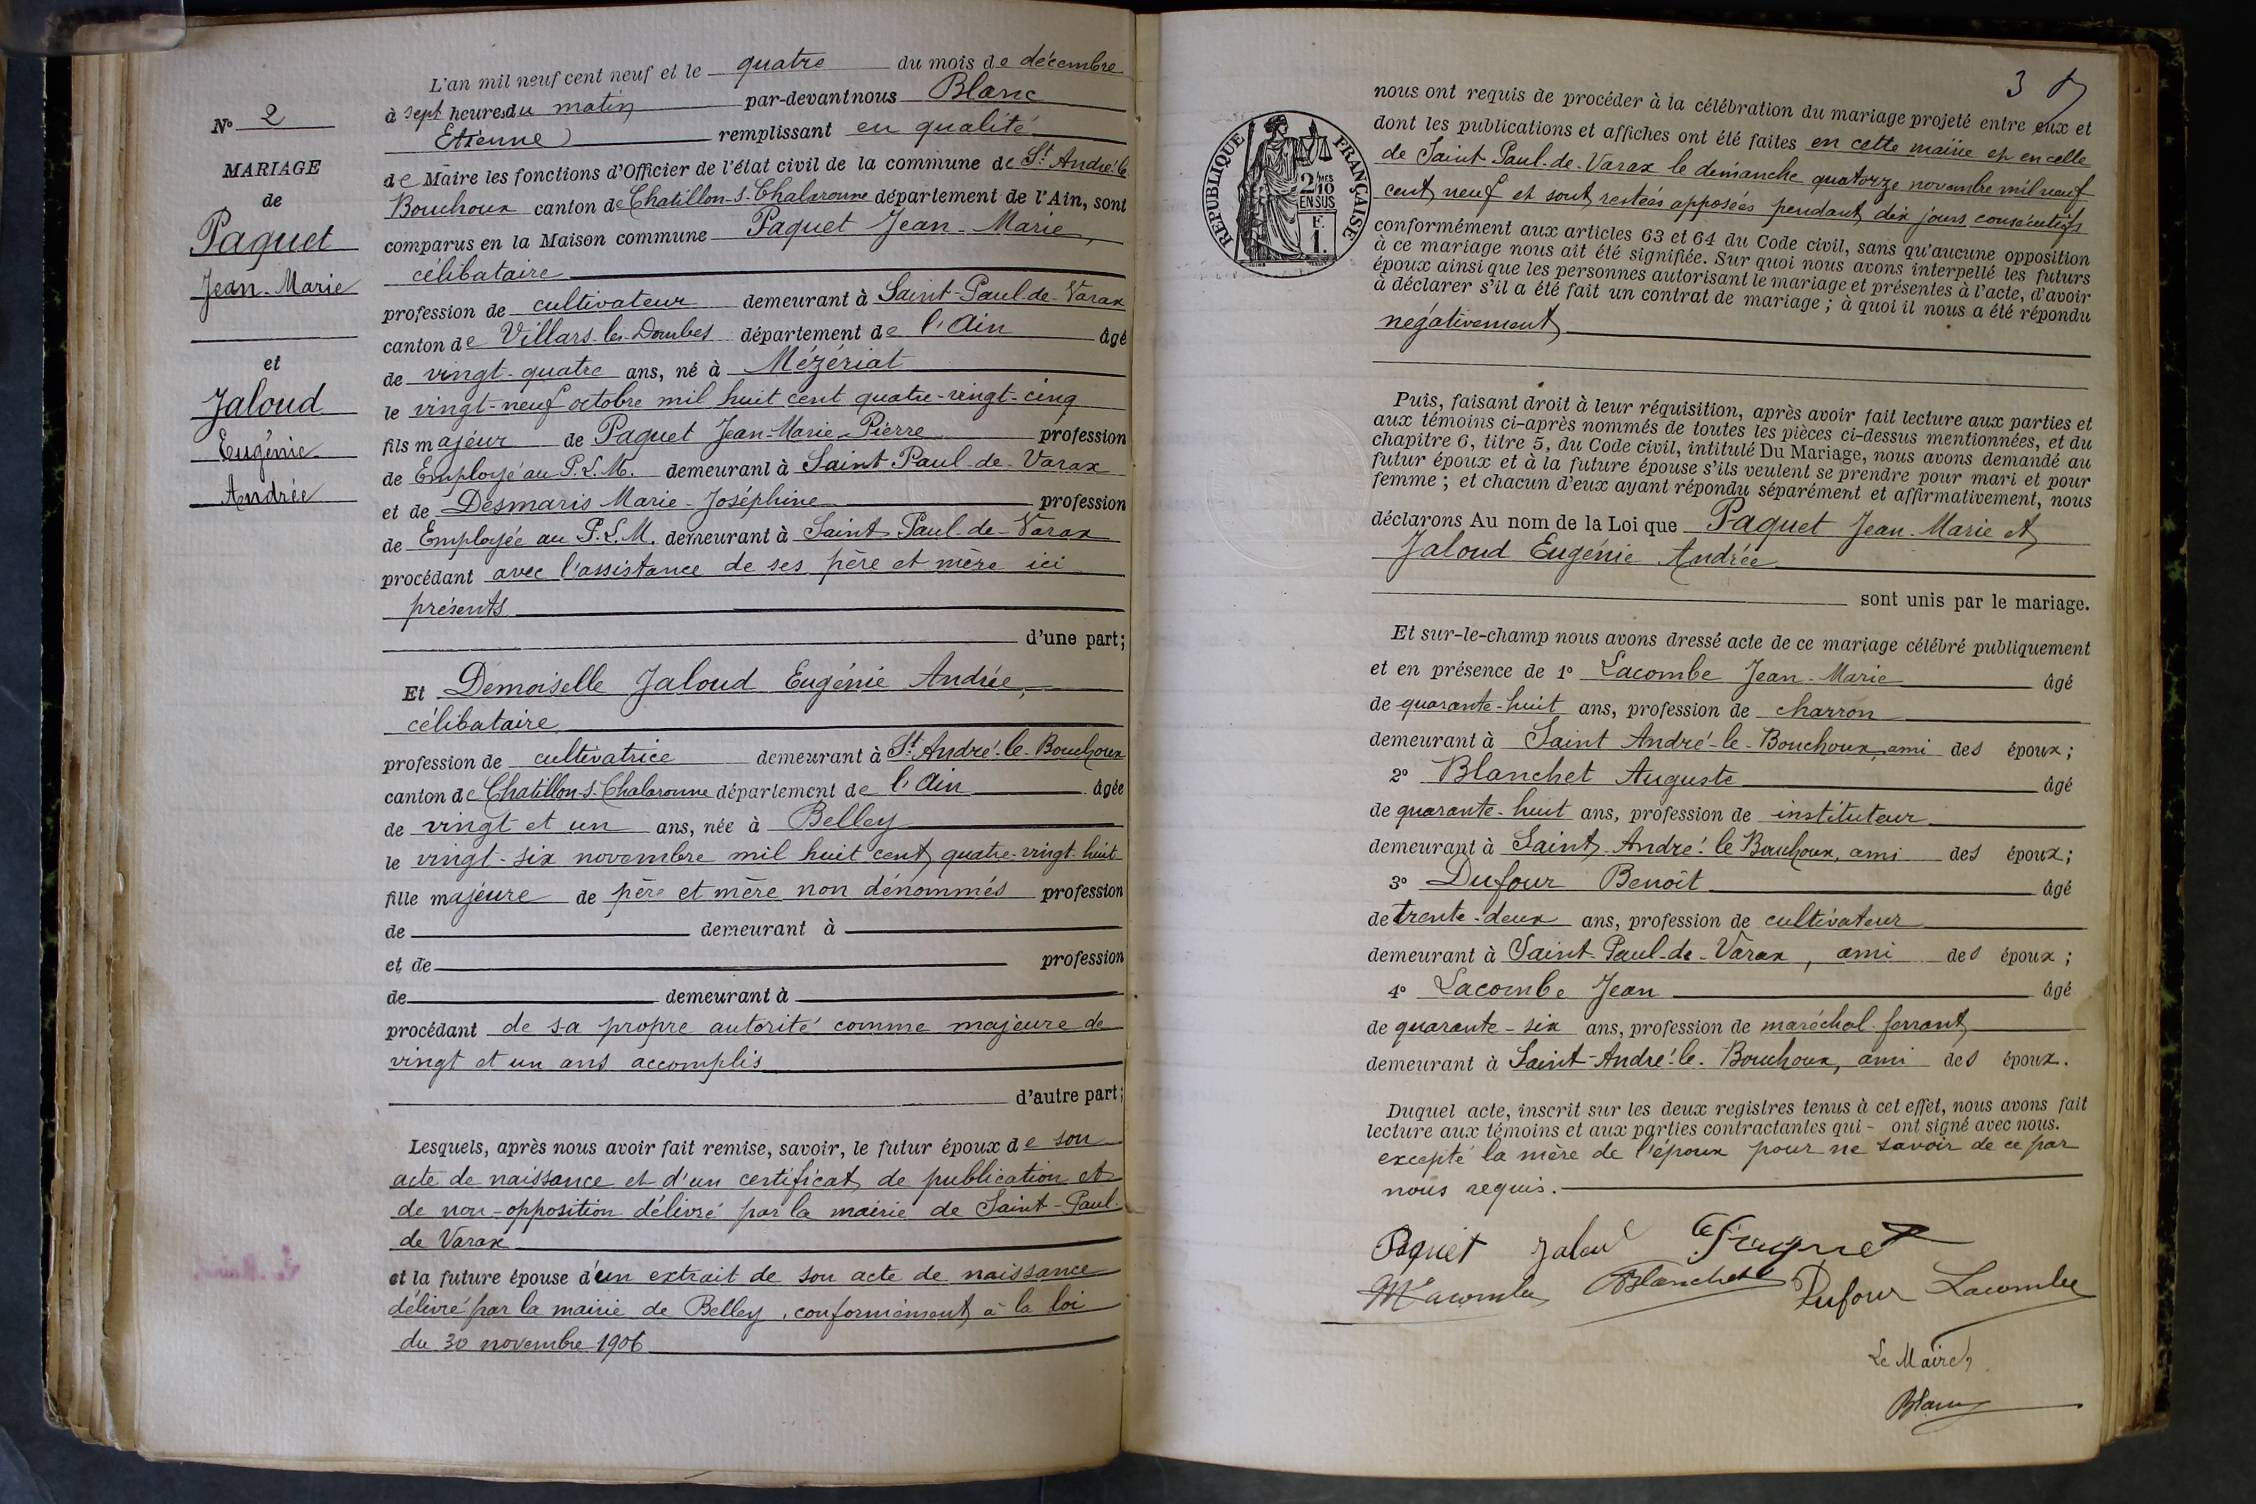 N° 2
MARIAGE
de
Paquet
Jean-Marie
et
Jaloud
Eugénie
Andrée
L'an mil neuf cent neuf et le quatre du mois de décembre
à sept heures du matin par-devant nous Blanc
Etienne remplissant en qualité
de Maire les fonctions d'Officier de l'état civil de la commune de St. André-le
Bouchoux canton de Chatillon-s-Chalaronne département de l'Ain, sont
comparus en la Maison commune Paquet Jean-Marie,
célibataire
profession de cultivateur demeurant à Saint-Paul-de-Varax
canton de Villars-les-Dombes département de l'Ain âgé
de vingt-quatre ans, né à Mézériat
le vingt-neuf octobre mil huit cent quatre-vingt-cinq
fils majeur de Paquet Jean-Marie-Pierre profession
de Employé au P.L.M. demeurant à Saint Paul-de-Varax
et de Desmaris Marie-Joséphine profession
de Employée au P.L.M. demeurant à Saint Paul-de-Varax
procédant avec l'assistance de ses père et mère ici
présents
d'une part;
Et Demoiselle Jaloud Eugénie Andrée,
célibataire
profession de cultivatrice demeurant à St. André-le-Bouchoux
canton de Chatillon-s-Chalaronne département de l'Ain âgée
de vingt et un ans, née à Belley
le vingt-six novembre mil huit cent quatre-vingt-huit
fille majeure de père et mère non dénommés profession
de demeurant à
et de profession
de demeurant à
procédant de sa propre autorité comme majeure de
vingt et un ans accomplis
d'autre part;
Lesquels, après nous avoir fait remise, savoir, le futur époux de son
acte de naissance et d'un certificat de publication et
de non-opposition délivré par la mairie de Saint-Paul-
de Varax
et la future épouse d'un extrait de son acte de naissance
délivré par la mairie de Belley, conformément à la loi
du 30 novembre 1906
3
REPUBLIQUE FRANÇAISE
2 MES
10
EN SUS
F.
1.
nous ont requis de procéder à la célébration du mariage projeté entre eux et
dont les publications et affiches ont été faites en cette mairie et en celle
de Saint Paul-de-Varax le dimanche quatorze novembre mil neuf
cent neuf et sont restées apposées pendant dix jours consécutifs
conformément aux articles 63 et 64 du Code civil, sans qu'aucune opposition
à ce mariage nous ait été signifiée. Sur quoi nous avons interpellé les futurs
époux ainsi que les personnes autorisant le mariage et présentes à l'acte, d'avoir
à déclarer s'il a été fait un contrat de mariage; à quoi il nous a été répondu
négativement
Puis, faisant droit à leur réquisition, après avoir fait lecture aux parties et
aux témoins ci-après nommés de toutes les pièces ci-dessus mentionnées, et du
chapitre 6, titre 5, du Code civil, intitulé Du Mariage, nous avons demandé au
futur époux et à la future épouse s'ils veulent se prendre pour mari et pour
femme; et chacun d'eux ayant répondu séparément et affirmativement, nous
déclarons Au nom de la Loi que Paquet Jean-Marie et
Jaloud Eugénie Andrée
sont unis par le mariage.
Et sur-le-champ nous avons dressé acte de ce mariage célébré publiquement
et en présence de 1° Lacombe Jean-Marie âgé
de quarante-huit ans, profession de charron
demeurant à Saint André-le-Bouchoux, ami des époux;
2° Blanchet Auguste âgé
de quarante-huit ans, profession de instituteur
demeurant à Saint-André-le Bouchoux, ami des époux;
3° Dufour Benoît âgé
de trente-deux ans, profession de cultivateur
demeurant à Saint-Paul-de-Varax, ami des époux;
4° Lacombe Jean âgé
de quarante-six ans, profession de maréchal-ferrant
demeurant à Saint-André-le-Bouchoux, ami des époux.
Duquel acte, inscrit sur les deux registres tenus à cet effet, nous avons fait
lecture aux témoins et aux parties contractantes qui - ont signé avec nous.
excepté la mère de l'époux pour ne savoir de ce par
nous requis.
Paquet Jaloud Paquet
Lacombe Blanchet Dufour Lacombe
Le Maire
Blanc